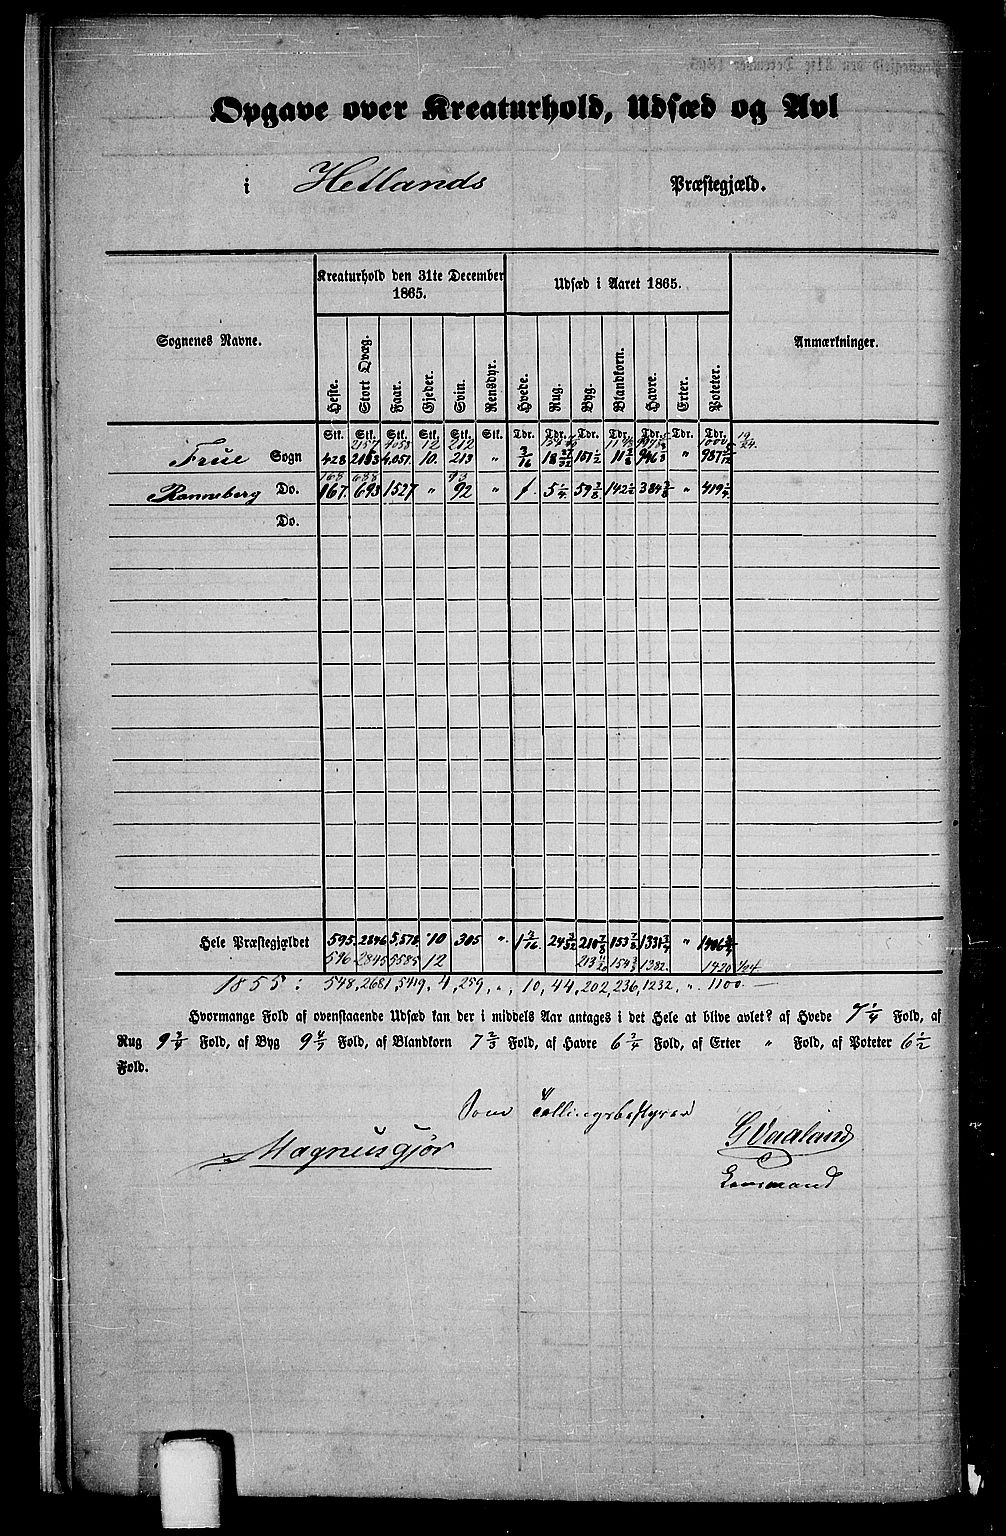 Opgave over Kreaturhold, Udsæd og Avl
i Hetlands Præstegjæld.
Sognenes Navne.
Kreaturhold den 31te December 1865.
Udsæd i Aaret 1865.
Anmærkninger.
Heste. Stort Qvæg. Faar. Gjeder. Svin. Rensdyr. Hvede. Rug. Byg. Blandkorn. Havre. Erter. Poteter.
Stk. Stk. Stk. Stk. Stk. Stk. Tdr. Tdr. Tdr. Tdr. Tdr. Tdr. Tdr.
2157 4058 12 212
Frue Sogn 428 2153 4,051 10. 213 " 3/16 151 1/2 946 "
168 688 93
Ranneberg Do. 167. 693 1527 " 92 " 1. 5 1/4 59 3/8 142 1/2 384 3/8 " 419 1/4
Do.
Hele Præstegjældet 595. 2846 5,578 10 305 " 210 7/8 153 7/8 1331 "
596 2845 5585 12 1382. 1420 1/24
1855: 548, 2681, 5419, 4, 259, ", 10, 44, 202, 236, 1232, ". 1100.
Hvormange Fold af ovenstaaende Udsæd kan der i middels Aar antages i det Hele at blive avlet? af Hvede 7 1/4 Fold, af
Rug 9 3/4 Fold, af Byg 9 Fold, af Blandkorn 7 2/3 Fold, af Havre 6 Fold, af Erter " Fold, af Poteter 6 1/2
Fold.
Som Tællingsbestyrer
Magnus Gjør
G Vaaland
Lensmand